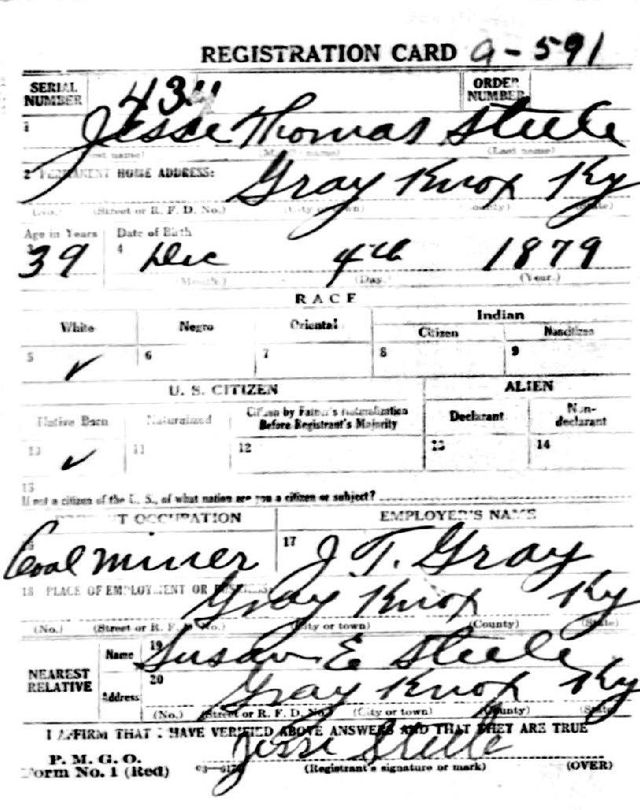 REGISTRATION CARD 9-591
SERIAL NUMBER 434 ORDER NUMBER
1 Jesse Thomas Steele
(First name) (Middle name) (Last name)
2 PERMANENT HOME ADDRESS: Gray Knox Ky
(No.) (Street or R. F. D. No.) (City or town) (County) (State)
Age in Years Date of Birth
3 39 4 Dec 4th 1879
(Month.) (Day.) (Year.)
RACE
White Negro Oriental Indian
Citizen Noncitizen
5 ✓ 6 7 8 9
U. S. CITIZEN ALIEN
Native Born Naturalized Citizen by Father's Naturalization Before Registrant's Majority Declarant Non-declarant
10 ✓ 11 12 13 14
15
If not a citizen of the U. S., of what nation are you a citizen or subject?
PRESENT OCCUPATION EMPLOYER'S NAME
Coal miner 17 J. T. Gray
18 PLACE OF EMPLOYMENT OR BUSINESS: Gray Knox Ky
(No.) (Street or R. F. D. No.) (City or town) (County) (State)
NEAREST RELATIVE Name 19 Susan E Steele
Address 20 Gray Knox Ky
(No.) (Street or R. F. D. No.) (City or town) (County) (State)
I AFFIRM THAT I HAVE VERIFIED ABOVE ANSWERS AND THAT THEY ARE TRUE
P. M. G. O.
Form No. 1 (Red) Jesse Steele
(Registrant's signature or mark) (OVER)